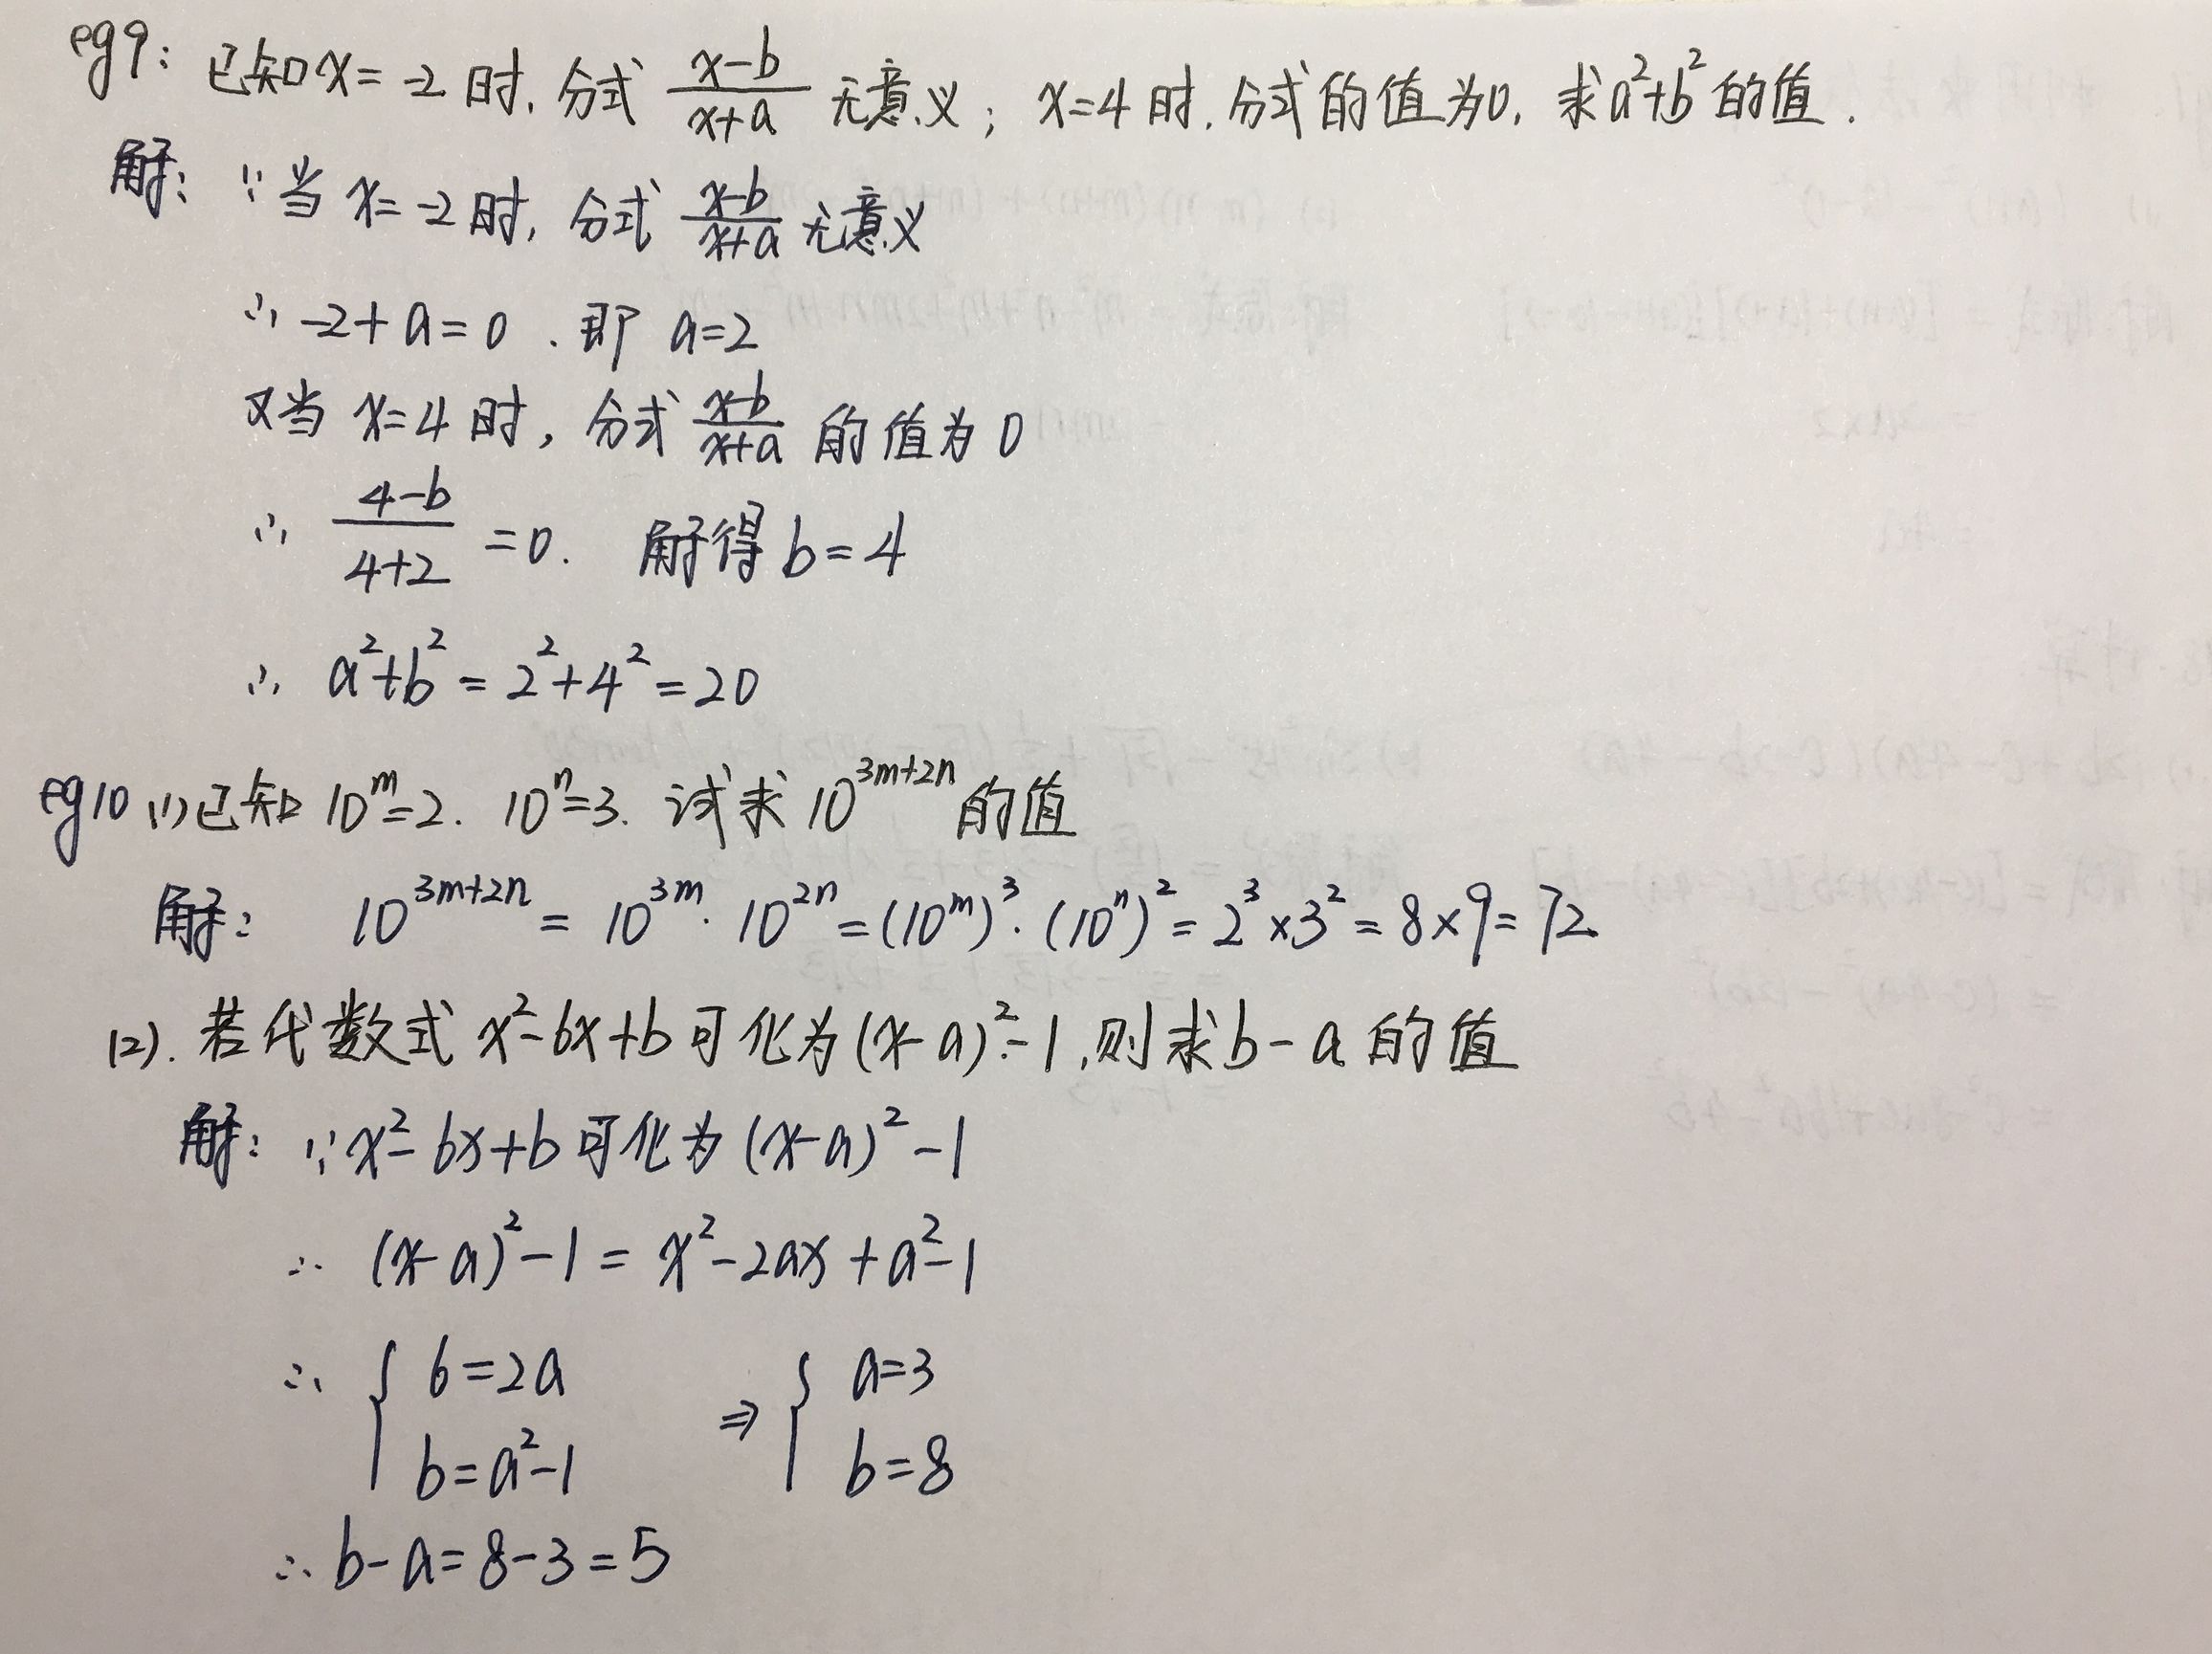 eg9: 已知x=-2时, 分式 (x-b)/(x+a) 无意义; x=4时, 分式的值为0, 求a²+b²的值.
解: ∵当 x=-2时, 分式 (x-b)/(x+a) 无意义
∴ -2+a=0. 即 a=2
又当 x=4时, 分式 (x-b)/(x+a) 的值为0
∴ (4-b)/(4+2) =0. 解得 b=4
∴ a²+b²=2²+4²=20
eg10 (1)已知 10^m=2. 10^n=3. 试求 10^(3m+2n) 的值
解: 10^(3m+2n) = 10^(3m)·10^(2n) = (10^m)³·(10^n)² = 2³×3² = 8×9=72
(2). 若代数式 x²-6x+b 可化为 (x-a)²-1, 则求b-a的值
解: ∵x²-6x+b 可化为 (x-a)²-1
∴ (x-a)²-1 = x²-2ax+a²-1
∴ { 6=2a ⇒ { a=3
b=a²-1 b=8
∴ b-a=8-3=5